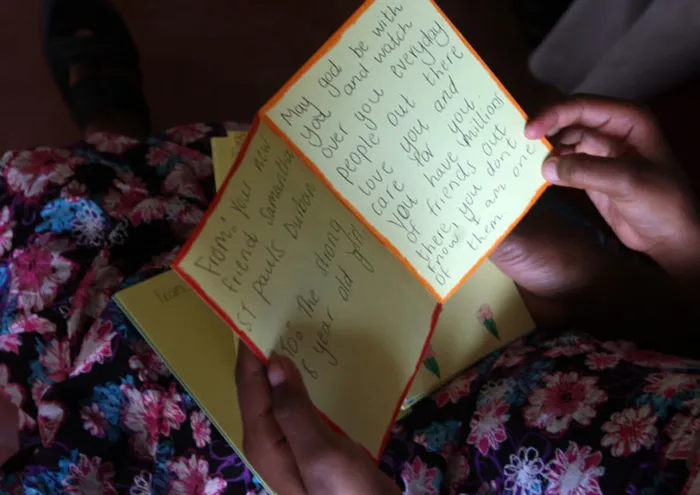 From: Your new
friend Samantha
ST Pauls Durban
To: The strong
6 year old girl
May god be with
you and watch
over you everyday
people out there
love you and
care for you.
You have millions
of friends out
there you don't
know! I am one
of them.